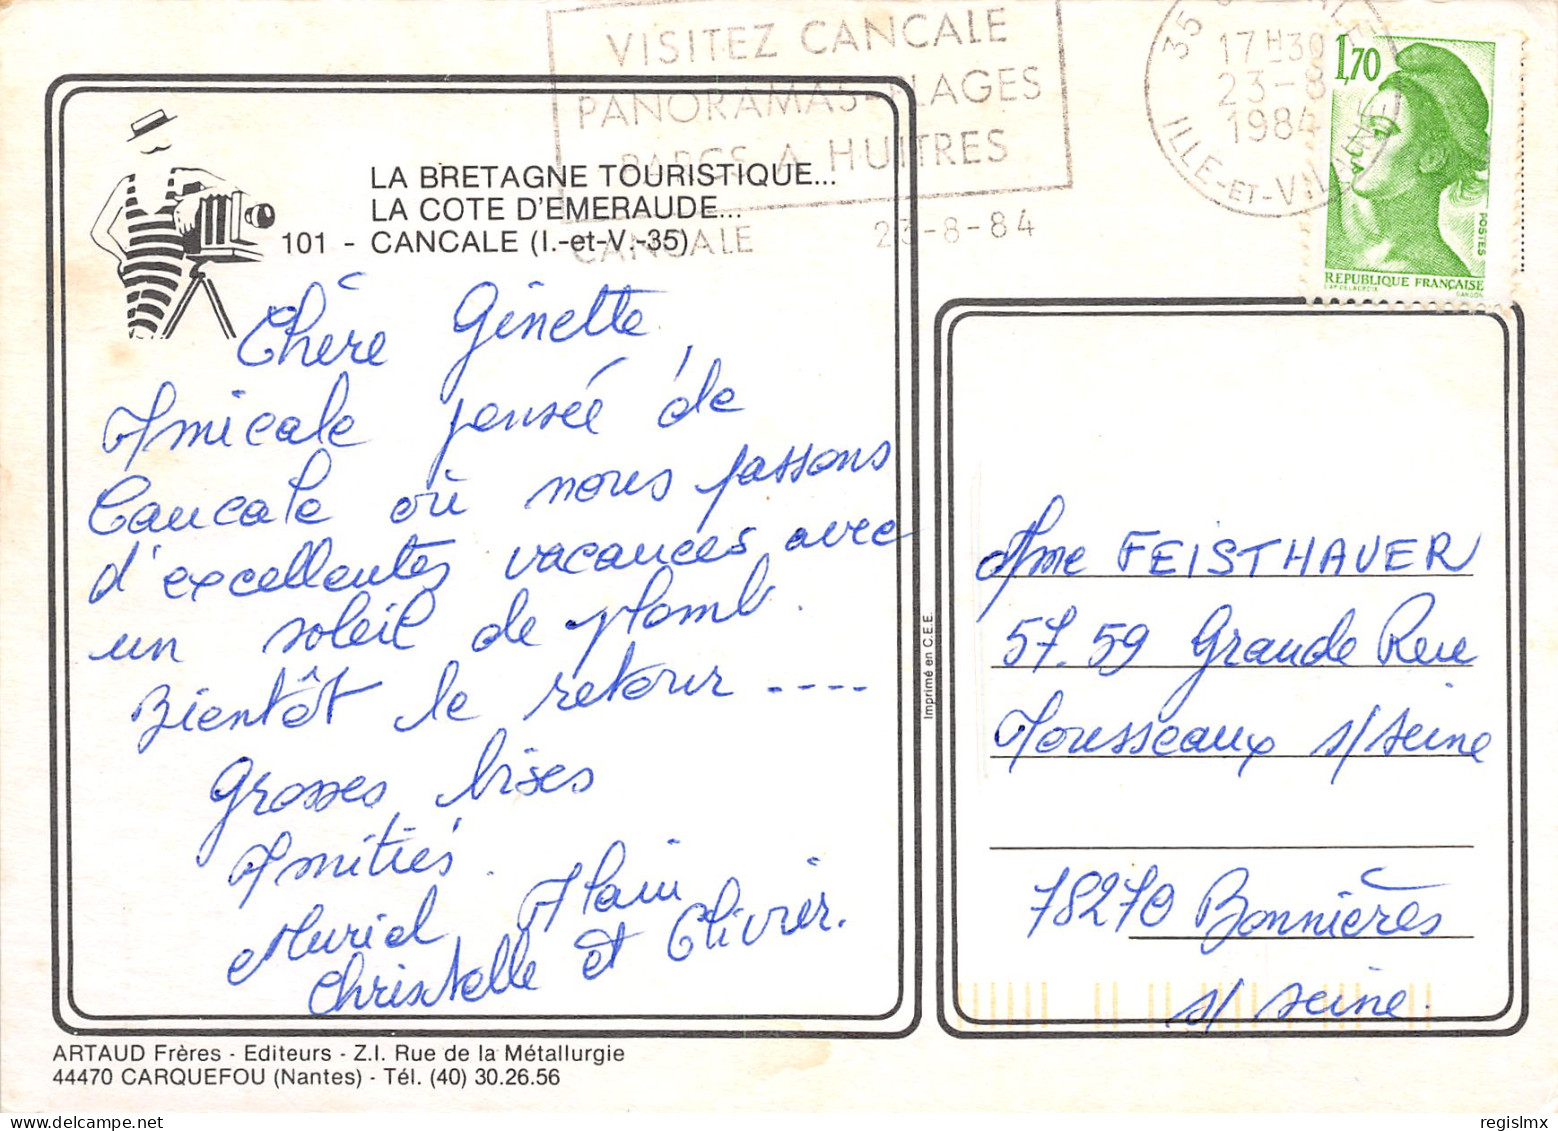 VISITEZ CANCALE
PANORAMAS-PLAGES
PARCS A HUITRES
CANCALE 23-8-84
35 CANCALE
17H30
23-8
1984
ILLE-ET-VILAINE
1,70
POSTES
REPUBLIQUE FRANÇAISE
LA BRETAGNE TOURISTIQUE...
LA COTE D'EMERAUDE...
101 - CANCALE (I.-et-V.-35)
Chère Ginette,
Amicale pensée de
Cancale où nous passons
d'excellentes vacances avec
un soleil de plomb.
Bientôt le retour ----
Grosses bises
Amitiés.
Muriel Alain
Christelle et Olivier.
Imprimé en C.E.E.
Mme FEISTHAUER
57.59 Grande Rue
Mousseaux s/seine
78270 Bonnières
s/ seine.
ARTAUD Frères - Editeurs - Z.I. Rue de la Métallurgie
44470 CARQUEFOU (Nantes) - Tél. (40) 30.26.56
regislmx